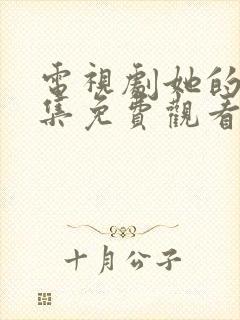 電視劇她的
集免費觀看
十月公子